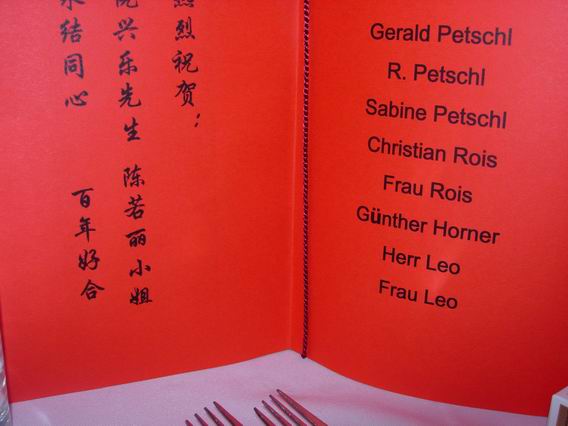 烈祝贺：
兴乐先生 陈若丽小姐
结同心 百年好合
Gerald Petschl
R. Petschl
Sabine Petschl
Christian Rois
Frau Rois
Günther Horner
Herr Leo
Frau Leo